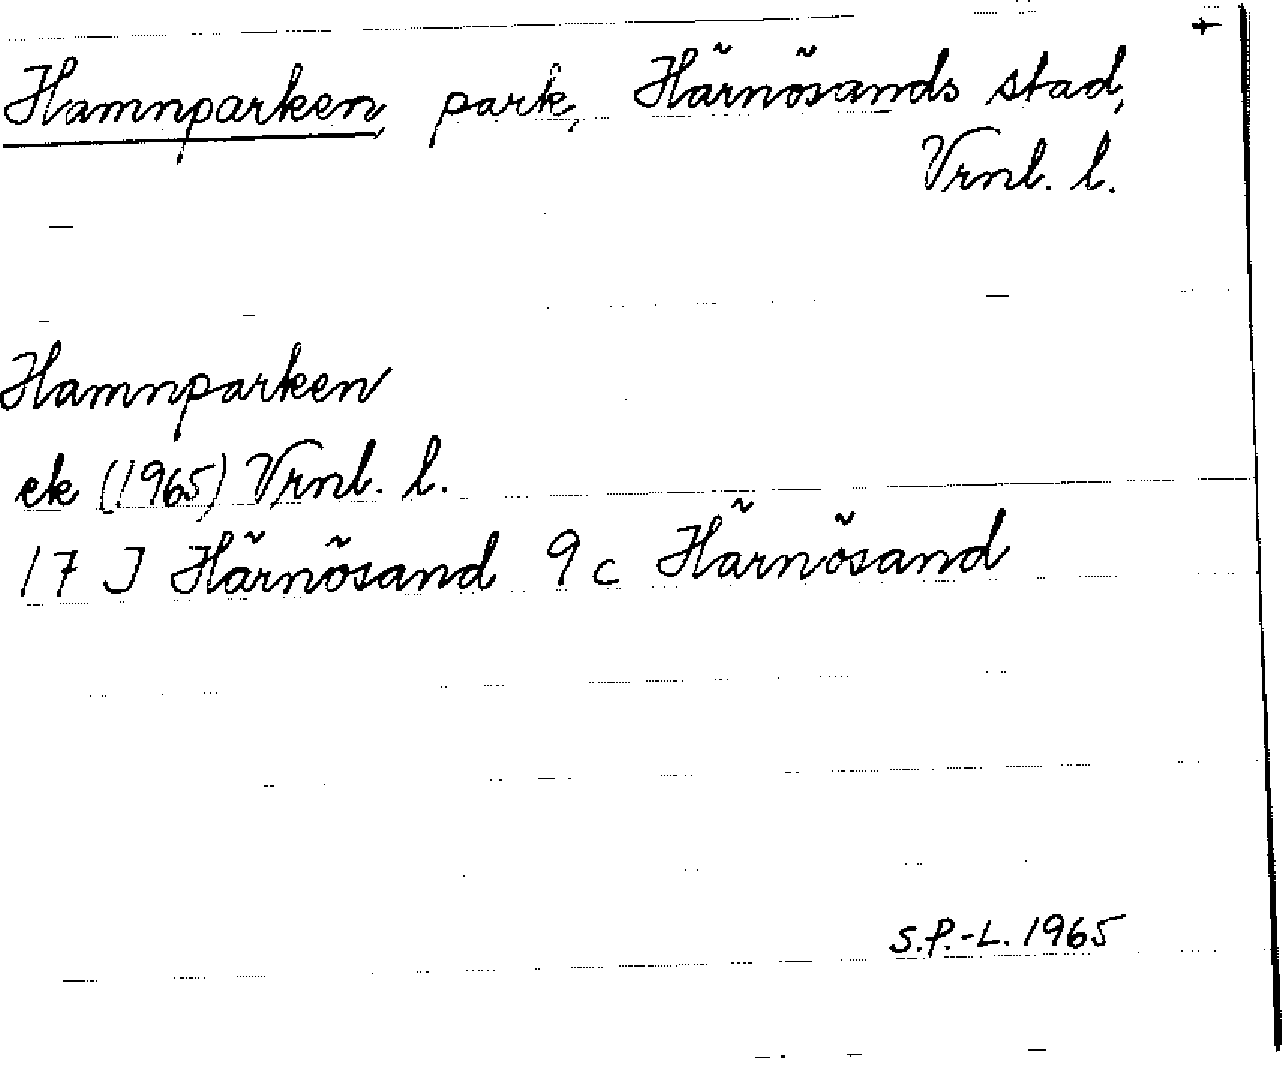 Hamnparken, park, Härnösands stad,
Vrnl. l.
Hamnparken
ek (1965) Vrnl. l.
17 J Härnösand 9 c Härnösand
S.P.-L. 1965